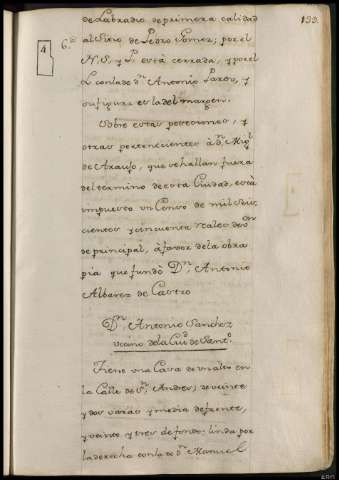 199.
de Labradio de primera calidad
4
6.ª al Sitio de Pedro Gomez; por el
N. S. y P. está cerrada, y por el
L. con la de d.n Antonio Pardo, y
su figura es la del margen.
Sobre estas posesiones, y
otras pertenecientes à d.n Mig.l
de Araujo, que se hallan fuera
del termino de esta Ciudad, està
impuesto un Censo de mil seis
cientos y cinquenta reales de v.on
de principal, à favor de la obra
pia que fundò D.n Antonio
Albarez de Castro
D.n Antonio Sanchez
vecino de la Ciu.d de Sant.o
Tiene una Casa de un alto en
la Calle de S.n Andres; de veinte
y dos varas y media de frente,
y veinte y tres de fondo: linda por
la derecha con la de d.n Manuel